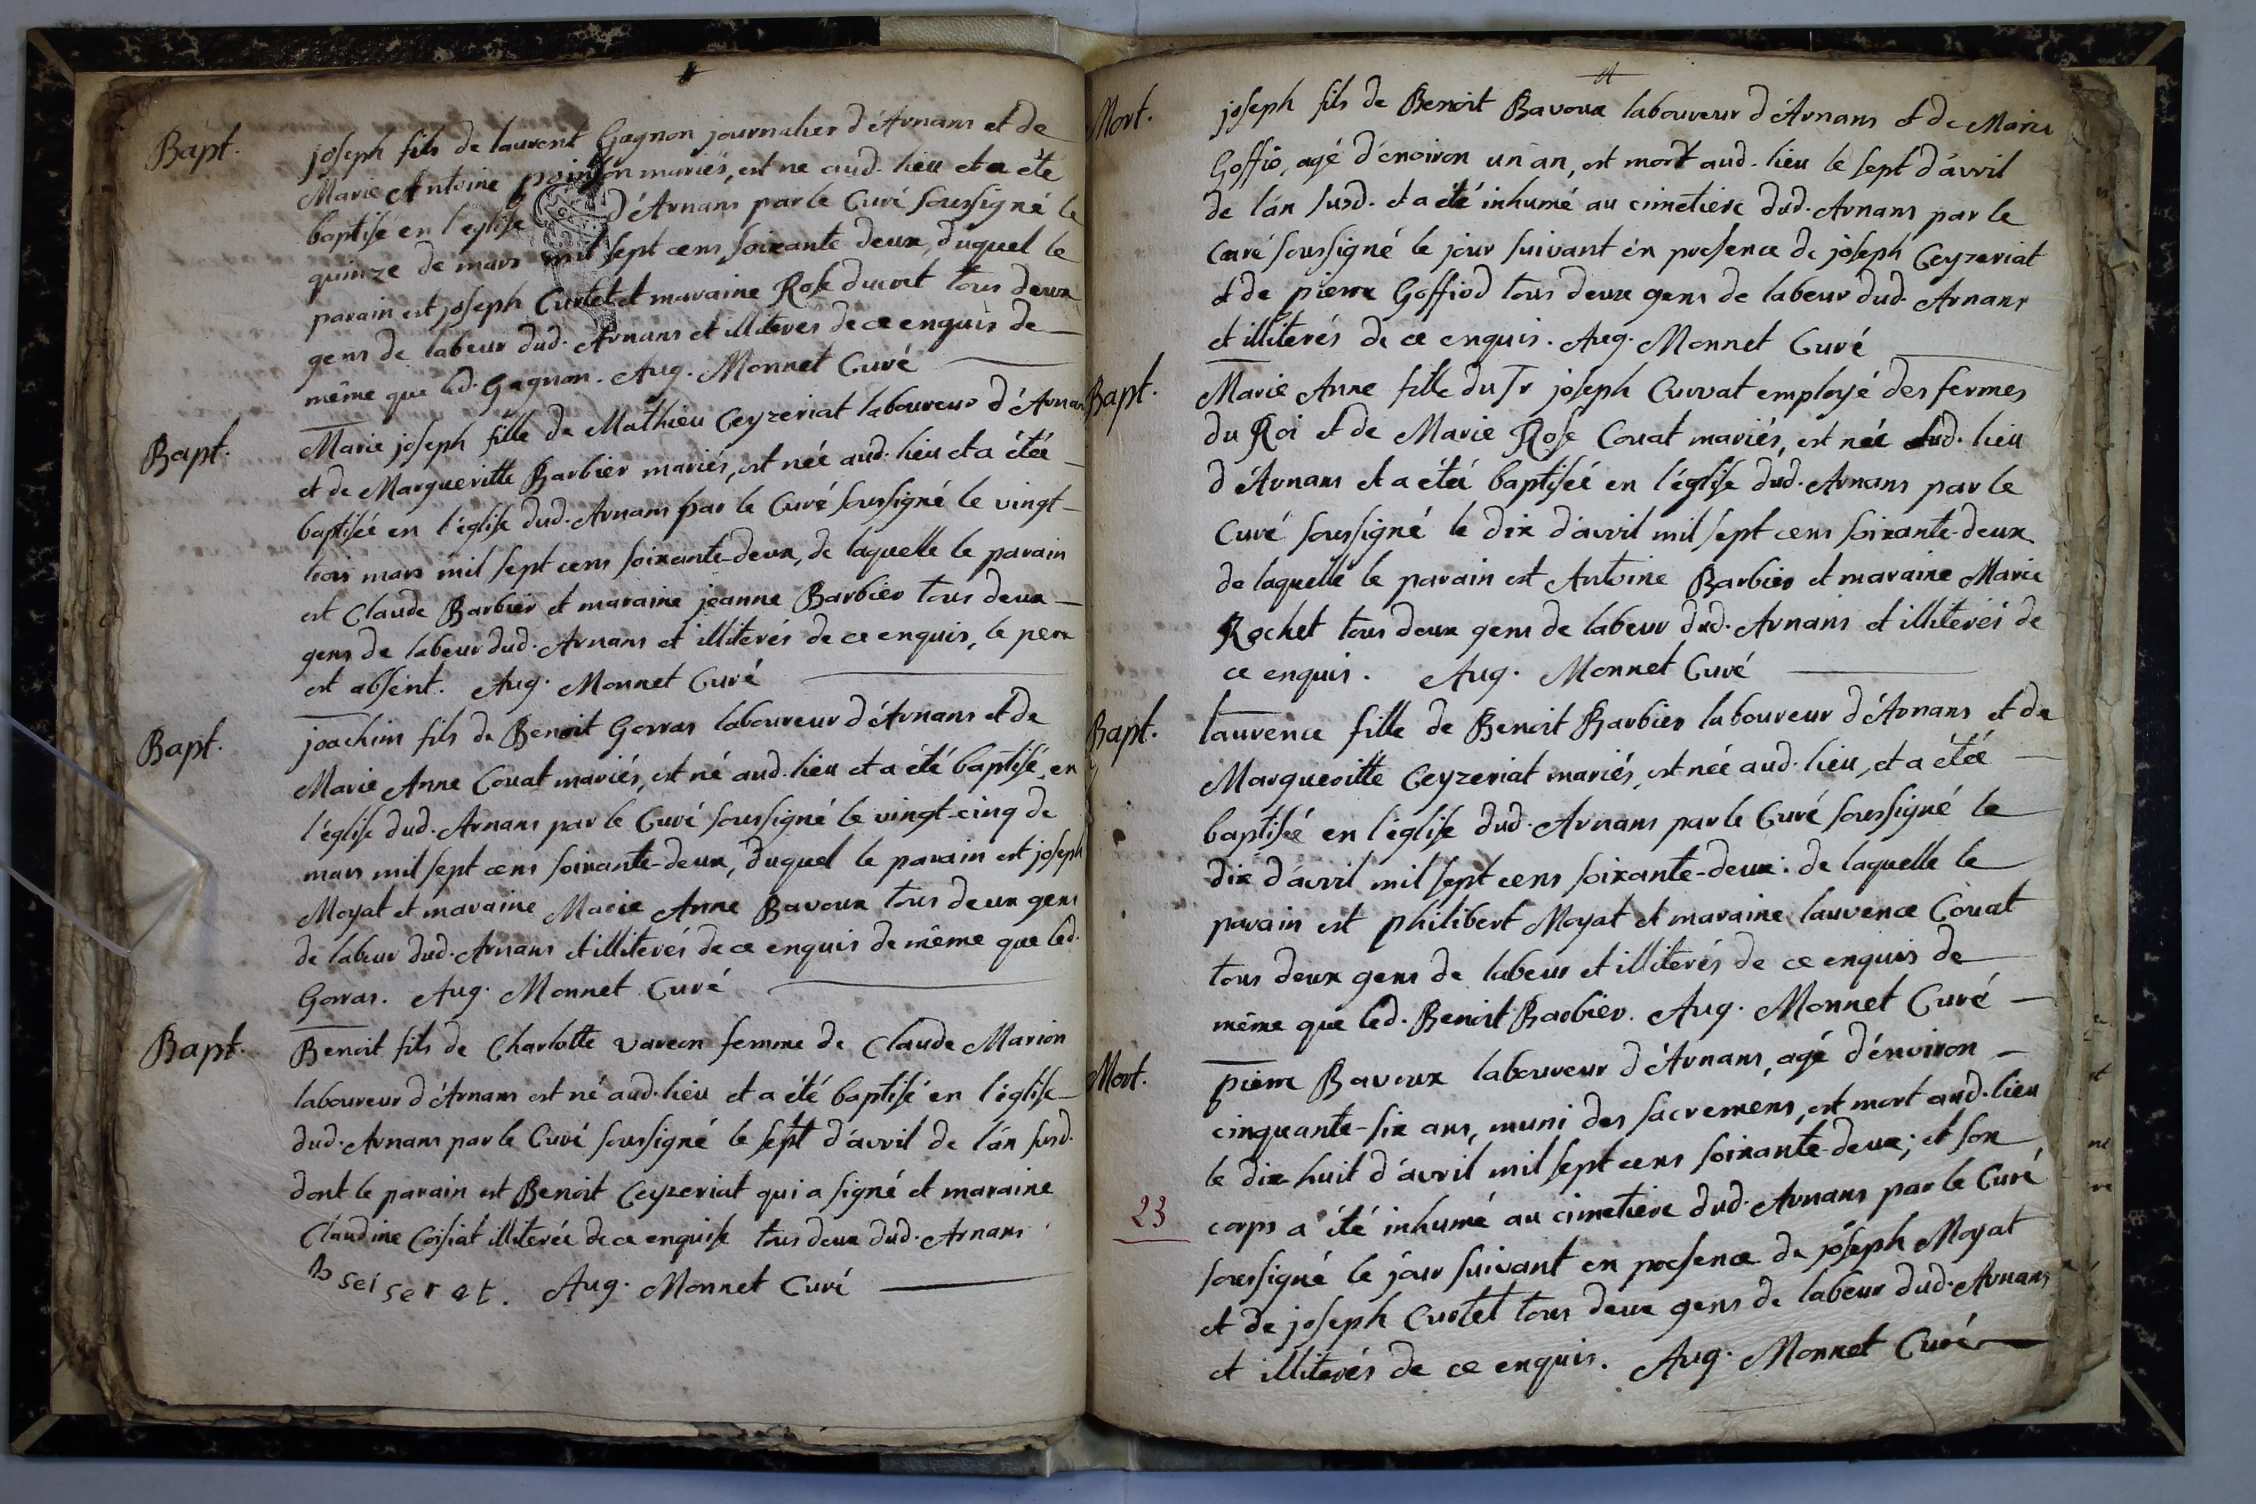 Bapt.
joseph fils de laurent Gagnon journalier d'Arnans et de
Marie Antoine mariés, est ne aud. lieu et a été
baptisé en l'eglise d'Arnans par le Curé soussigné le
quinze de mars mil sept cens soixante deux, duquel le
parain est joseph Curtet et maraine Rose tous deux
gens de labeur dud. Arnans et illiteres de ce enquis de
même que led. Gagnon. Aug. Monnet Curé
Bapt.
Marie joseph fille de Mathieu Ceyzeriat laboureur d'Arnans
et de Margueritte Barbier mariés, est née aud. lieu et a étée
baptisée en l'église dud. Arnans par le Curé soussigné le vingt-
trois mars mil sept cens soixante-deux, de laquelle le parain
est Claude Barbier et maraine jeanne Barbier tous deux
gens de labeur dud. Arnans et illiterés de ce enquis, le pere
est absent. Aug. Monnet Curé
Bapt.
joachim fils de Benoit Gorras laboureur d'Arnans et de
Marie Anne Couat mariés, est né aud. lieu et a été baptisé en
l'église dud. Arnans par le Curé soussigné le vingt-cinq de
mars mil sept cens soixante-deux, duquel le parain est joseph
Moyat et maraine Marie Anne Bavoux tous deux gens
de labeur dud. Arnans et illiterés de ce enquis de même que led.
Gorras. Aug. Monnet Curé
Bapt.
Benoit fils de Charlotte Vareon femme de Claude Marion
laboureur d'Arnans est né aud. lieu et a été baptisé en l'église
dud. Arnans par le Curé soussigné le sept d'avril de l'an susd.
dont le parain est Benoit Ceyzeriat qui a signé et maraine
Claudine Coisiat illiterée de ce enquise tous deux dud. Arnans
B sei ser at. Aug. Monnet Curé
Mort.
joseph fils de Benoit Bavoux laboureur d'Arnans et de Marie
Goffio, agé d'environ un an, est mort aud. lieu le sept d'avril
de l'an susd. et a été inhumé au cimetiere dud. Arnans par le
Curé soussigné le jour suivant en presence de joseph Ceyzeriat
et de pierre Goffiod tous deux gens de labeur dud. Arnans
et illiterés de ce enquis. Aug. Monnet Curé
Bapt.
Marie Anne fille du Sr joseph Curvat employé des fermes
du Roi et de Marie Rose Couat mariés, est née aud. lieu
d'Arnans et a étée baptisée en l'église dud. Arnans par le
Curé soussigné le dix d'avril mil sept cens soixante-deux
de laquelle le parain est Antoine Barbier et maraine Marie
Rochet tous deux gens de labeur dud. Arnans et illiterés de
ce enquis. Aug. Monnet Curé
Bapt.
laurence fille de Benoit Barbier laboureur d'Arnans et de
Margueritte Ceyzeriat mariés, est née aud. lieu, et a étée
baptisée en l'église dud. Arnans par le Curé soussigné le
dix d'avril mil sept cens soixante-deux: de laquelle le
parain est philibert Moyat et maraine laurence Couat
tous deux gens de labeur et illiterés de ce enquis de
même que led. Benoit Barbier. Aug. Monnet Curé
Mort.
pierre Bavoux laboureur d'Arnans, agé d'environ
cinquante-six ans, muni des sacremens, est mort aud. lieu
le dix-huit d'avril mil sept cens soixante-deux; et son
23
corps a été inhumé au cimetiere dud. Arnans par le Curé
soussigné le jour suivant en presence de joseph Moyat
et de joseph Curtet tous deux gens de labeur dud. Arnans
et illiterés de ce enquis. Aug. Monnet Curé